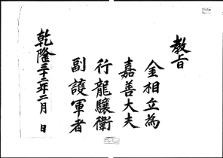 教旨
金相立為
嘉善大夫
行龍驤衛
副護軍者
乾隆三十六年二月 日